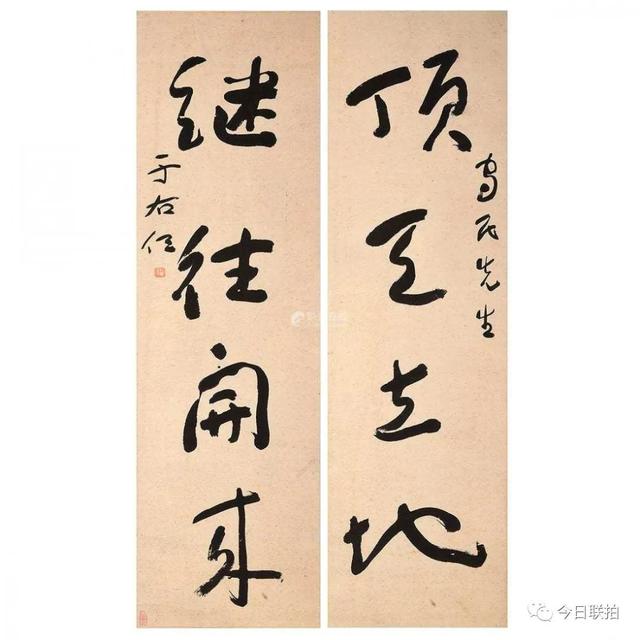 顶天立地
民先生
继往开来
于右任
今日联拍